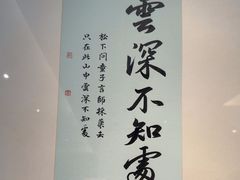 雲深不知處
松下問童子言師採藥去
只在此山中雲深不知處